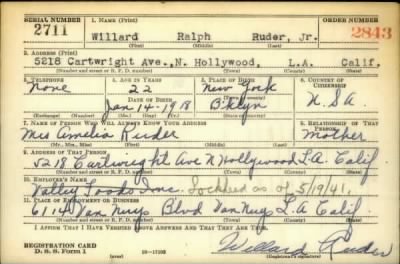 SERIAL NUMBER 1. NAME (Print) ORDER NUMBER
2711 Willard Ralph Ruder, Jr. 2843
(First) (Middle) (Last)
2. ADDRESS (Print)
5218 Cartwright Ave., N. Hollywood, L.A. Calif.
(Number and street or R. F. D. number) (Town) (County) (State)
3. TELEPHONE 4. AGE IN YEARS 5. PLACE OF BIRTH 6. COUNTRY OF CITIZENSHIP
None 22 New York
DATE OF BIRTH B'klyn U.S.A
Jan-14-1918
(Exchange) (Number) (Mo.) (Day) (Yr.) (State or country)
7. NAME OF PERSON WHO WILL ALWAYS KNOW YOUR ADDRESS 8. RELATIONSHIP OF THAT PERSON
Mrs Amelia Ruder Mother
(Mr., Mrs., Miss) (First) (Middle) (Last)
9. ADDRESS OF THAT PERSON
5218 Cartwright Ave N Hollywood L.A. Calif
(Number and street or R. F. D. number) (Town) (County) (State)
10. EMPLOYER'S NAME
Valley Tools Inc. Lockheed as of 5/19/41.
11. PLACE OF EMPLOYMENT OR BUSINESS
Van Nuys Blvd Van Nuys L.A Calif.
(Number and street or R. F. D. number) (Town) (County) (State)
I AFFIRM THAT I HAVE VERIFIED ABOVE ANSWERS AND THAT THEY ARE TRUE.
REGISTRATION CARD
D. S. S. Form 1 16—17105 Willard Ruder
(over) (Registrant's signature)